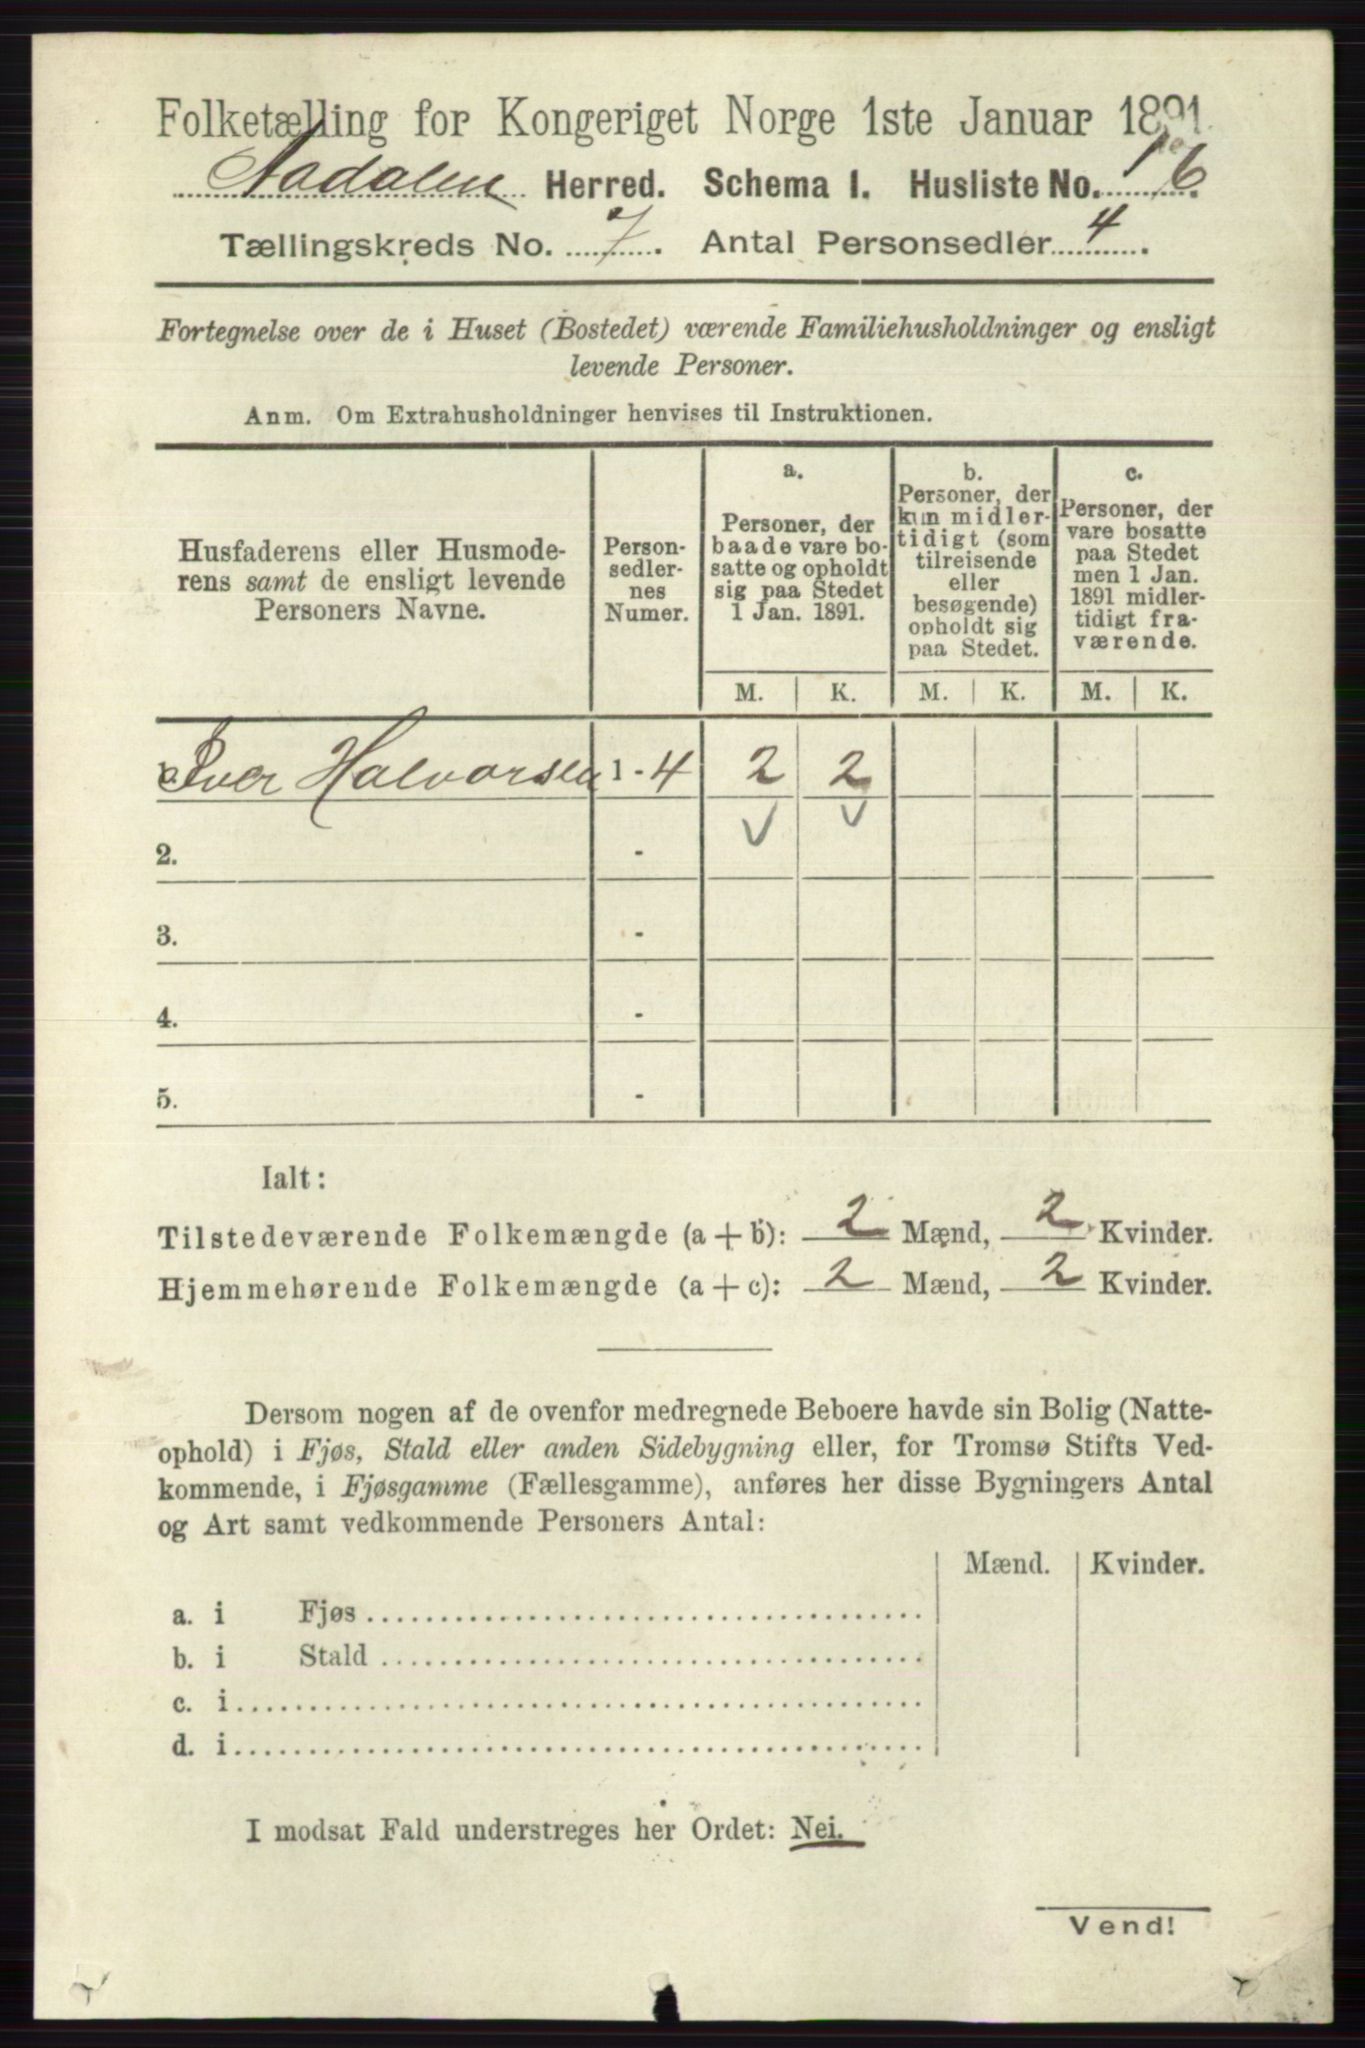 Folketælling for Kongeriget Norge 1ste Januar 1891.
Aadalen Herred. Schema 1. Husliste No. 16.
Tællingskreds No. 7. Antal Personsedler 4.
Fortegnelse over de i Huset (Bostedet) værende Familiehusholdninger og ensligt
levende Personer.
Anm. Om Extrahusholdninger henvises til Instruktionen.
Husfaderens eller Husmode-
rens samt de ensligt levende
Personers Navne.
Person-
sedler-
nes
Numer.
a.
Personer, der
baade vare bo-
satte og opholdt
sig paa Stedet
1 Jan. 1891.
b.
Personer, der
kun midler-
tidigt (som
tilreisende
eller
besøgende)
opholdt sig
paa Stedet.
c.
Personer, der
vare bosatte
paa Stedet
men 1 Jan.
1891 midler-
tidigt fra-
værende.
M. K. M. K. M. K.
Iver Halvorsen 1 - 4 2 2
2. -
3. -
4. -
5. -
Ialt:
Tilstedeværende Folkemængde (a + b): 2 Mænd, 2 Kvinder.
Hjemmehørende Folkemængde (a + c): 2 Mænd, 2 Kvinder.
Dersom nogen af de ovenfor medregnede Beboere havde sin Bolig (Natte-
ophold) i Fjøs, Stald eller anden Sidebygning eller, for Tromsø Stifts Ved-
kommende, i Fjøsgamme (Fællesgamme), anføres her disse Bygningers Antal
og Art samt vedkommende Personers Antal:
Mænd. Kvinder.
a. i Fjøs
b. i Stald
c. i
d. i
I modsat Fald understreges her Ordet: Nei.
Vend!